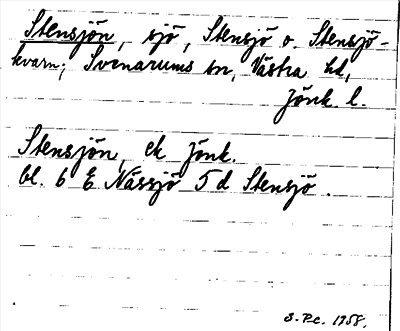 Stensjön, sjö, Stensjö o. Stensjö-
kvarn; Svenarums sn, Västra hd,
Jönk. l.
Stensjön, ek Jönk.
bl. 6 E Nässjö 5 d Stensjö.
S. P.c. 1958.